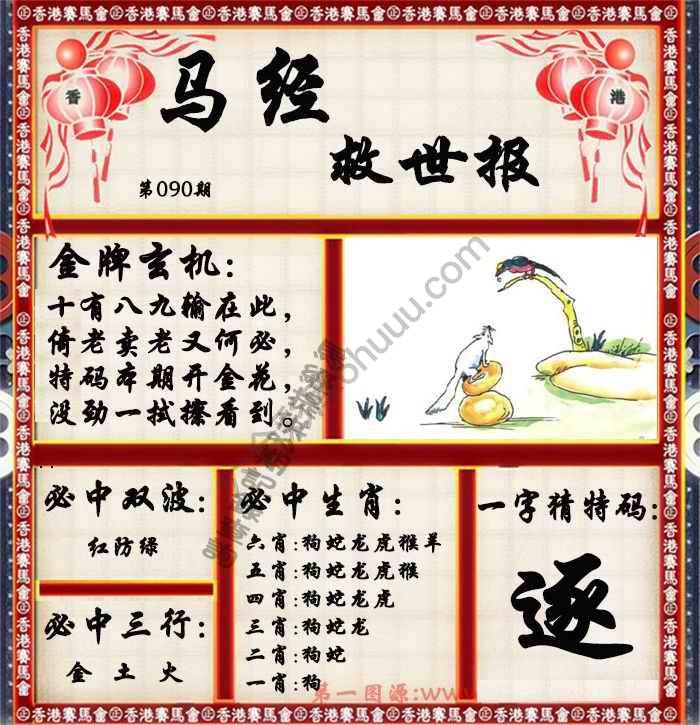 香港賽馬會
香 港
马经
救世报
第090期
金牌玄机：
十有八九输在此，
倚老卖老又何必，
特码本期开金花，
没劲一拭擦看到。
必中双波：
红防绿
必中三行：
金 土 火
必中生肖：
六肖:狗蛇龙虎猴羊
五肖:狗蛇龙虎猴
四肖:狗蛇龙虎
三肖:狗蛇龙
二肖:狗蛇
一肖:狗
一字猜特码：
逐
第一图源:www